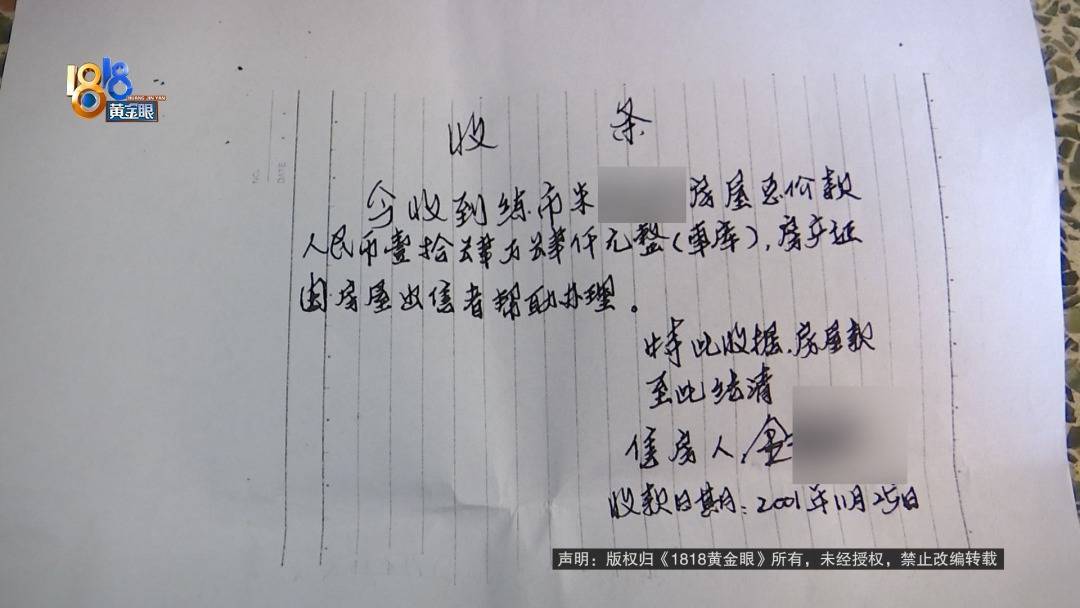 1818
HUANG JIN YAN
黄金眼
NO.
DATE
收 条
今收到练市朱 房屋总价款
人民币壹拾肆万肆仟元整(車库),房产证
由房屋出售者帮助办理。
特此收据.房屋款
至此结清
售房人:金
收款日期:2001年11月25日
声明:版权归《1818黄金眼》所有,未经授权,禁止改编转载